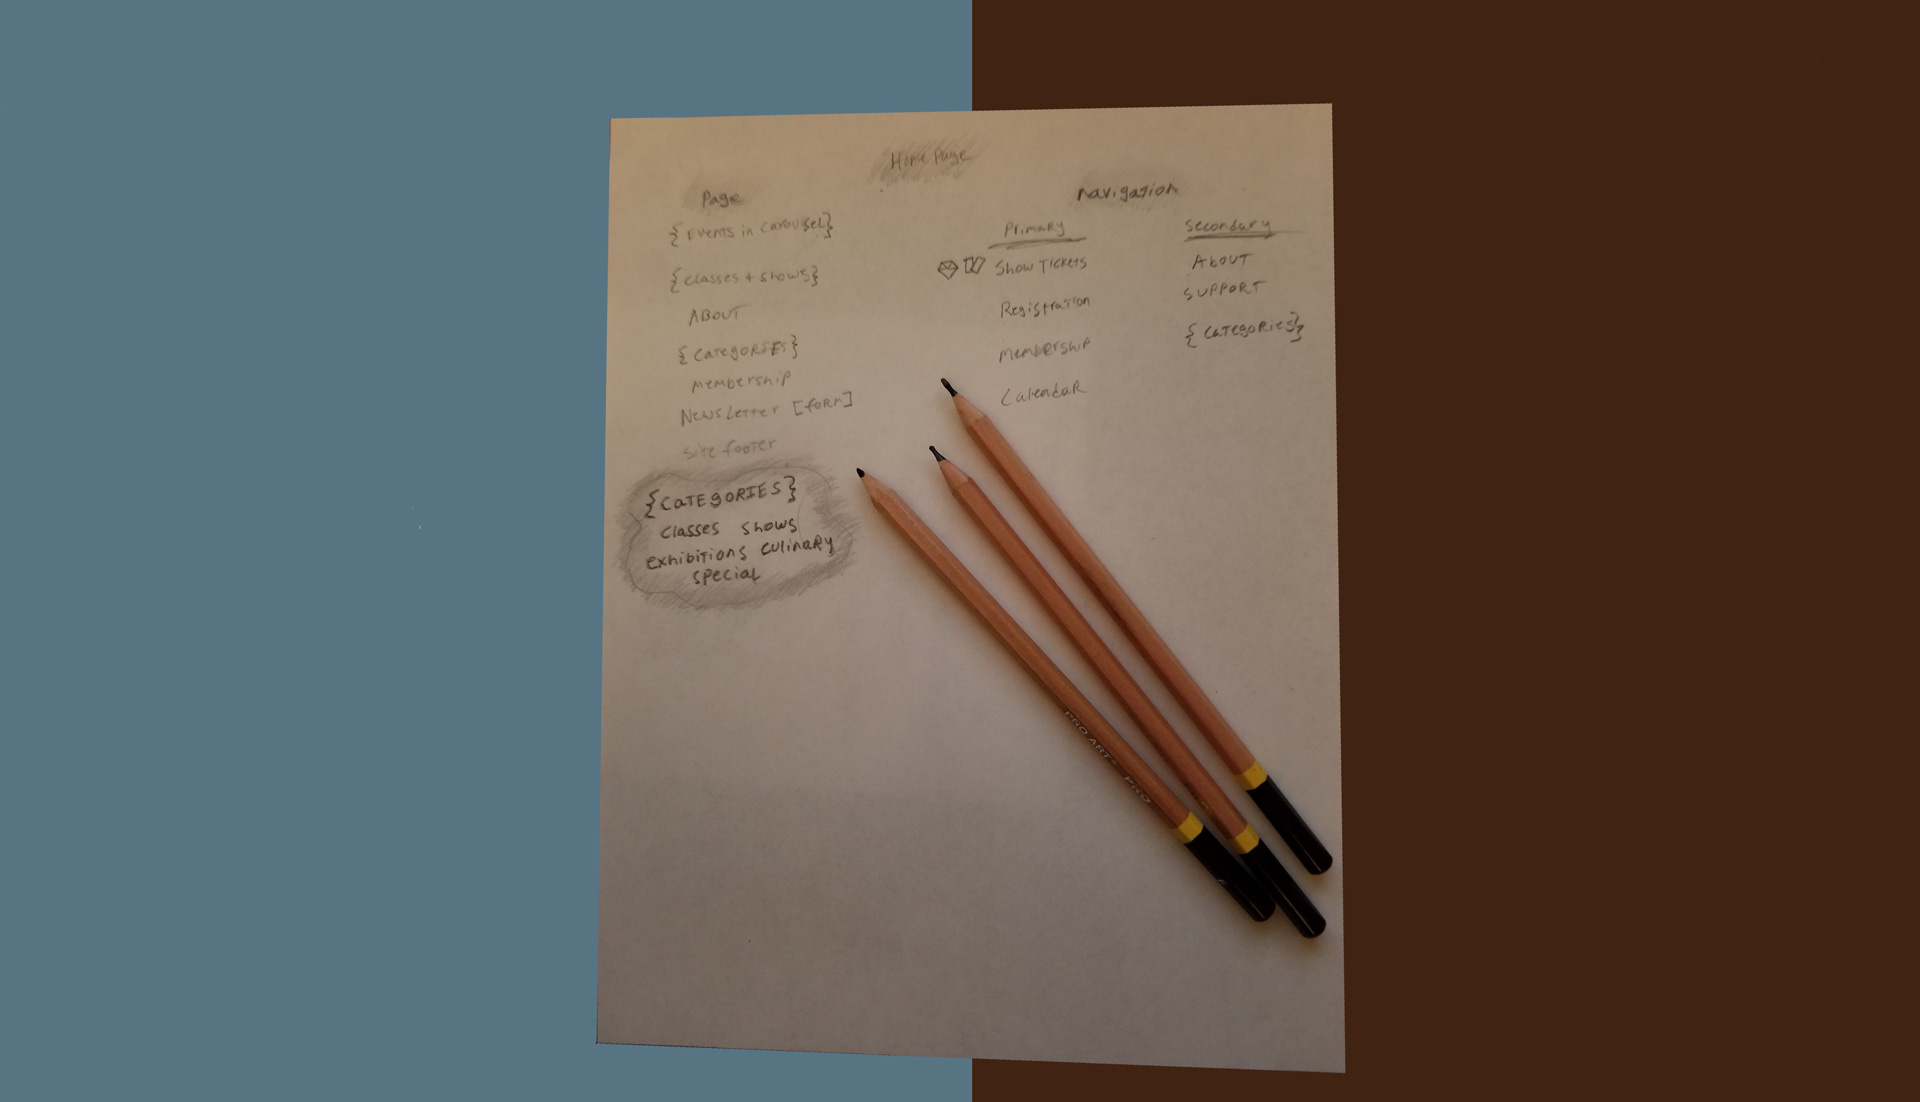 Home Page
Page
{Events in Carousel}
{classes + shows}
ABOUT
{CATEGORIES}
Membership
NewsLetter [form]
site footer
{CATEGORIES}
classes shows
exhibitions culinary
special
navigation
Primary
Show Tickets
Registration
Membership
Calendar
Secondary
About
SUPPORT
{Categories}
PRO ART PRO